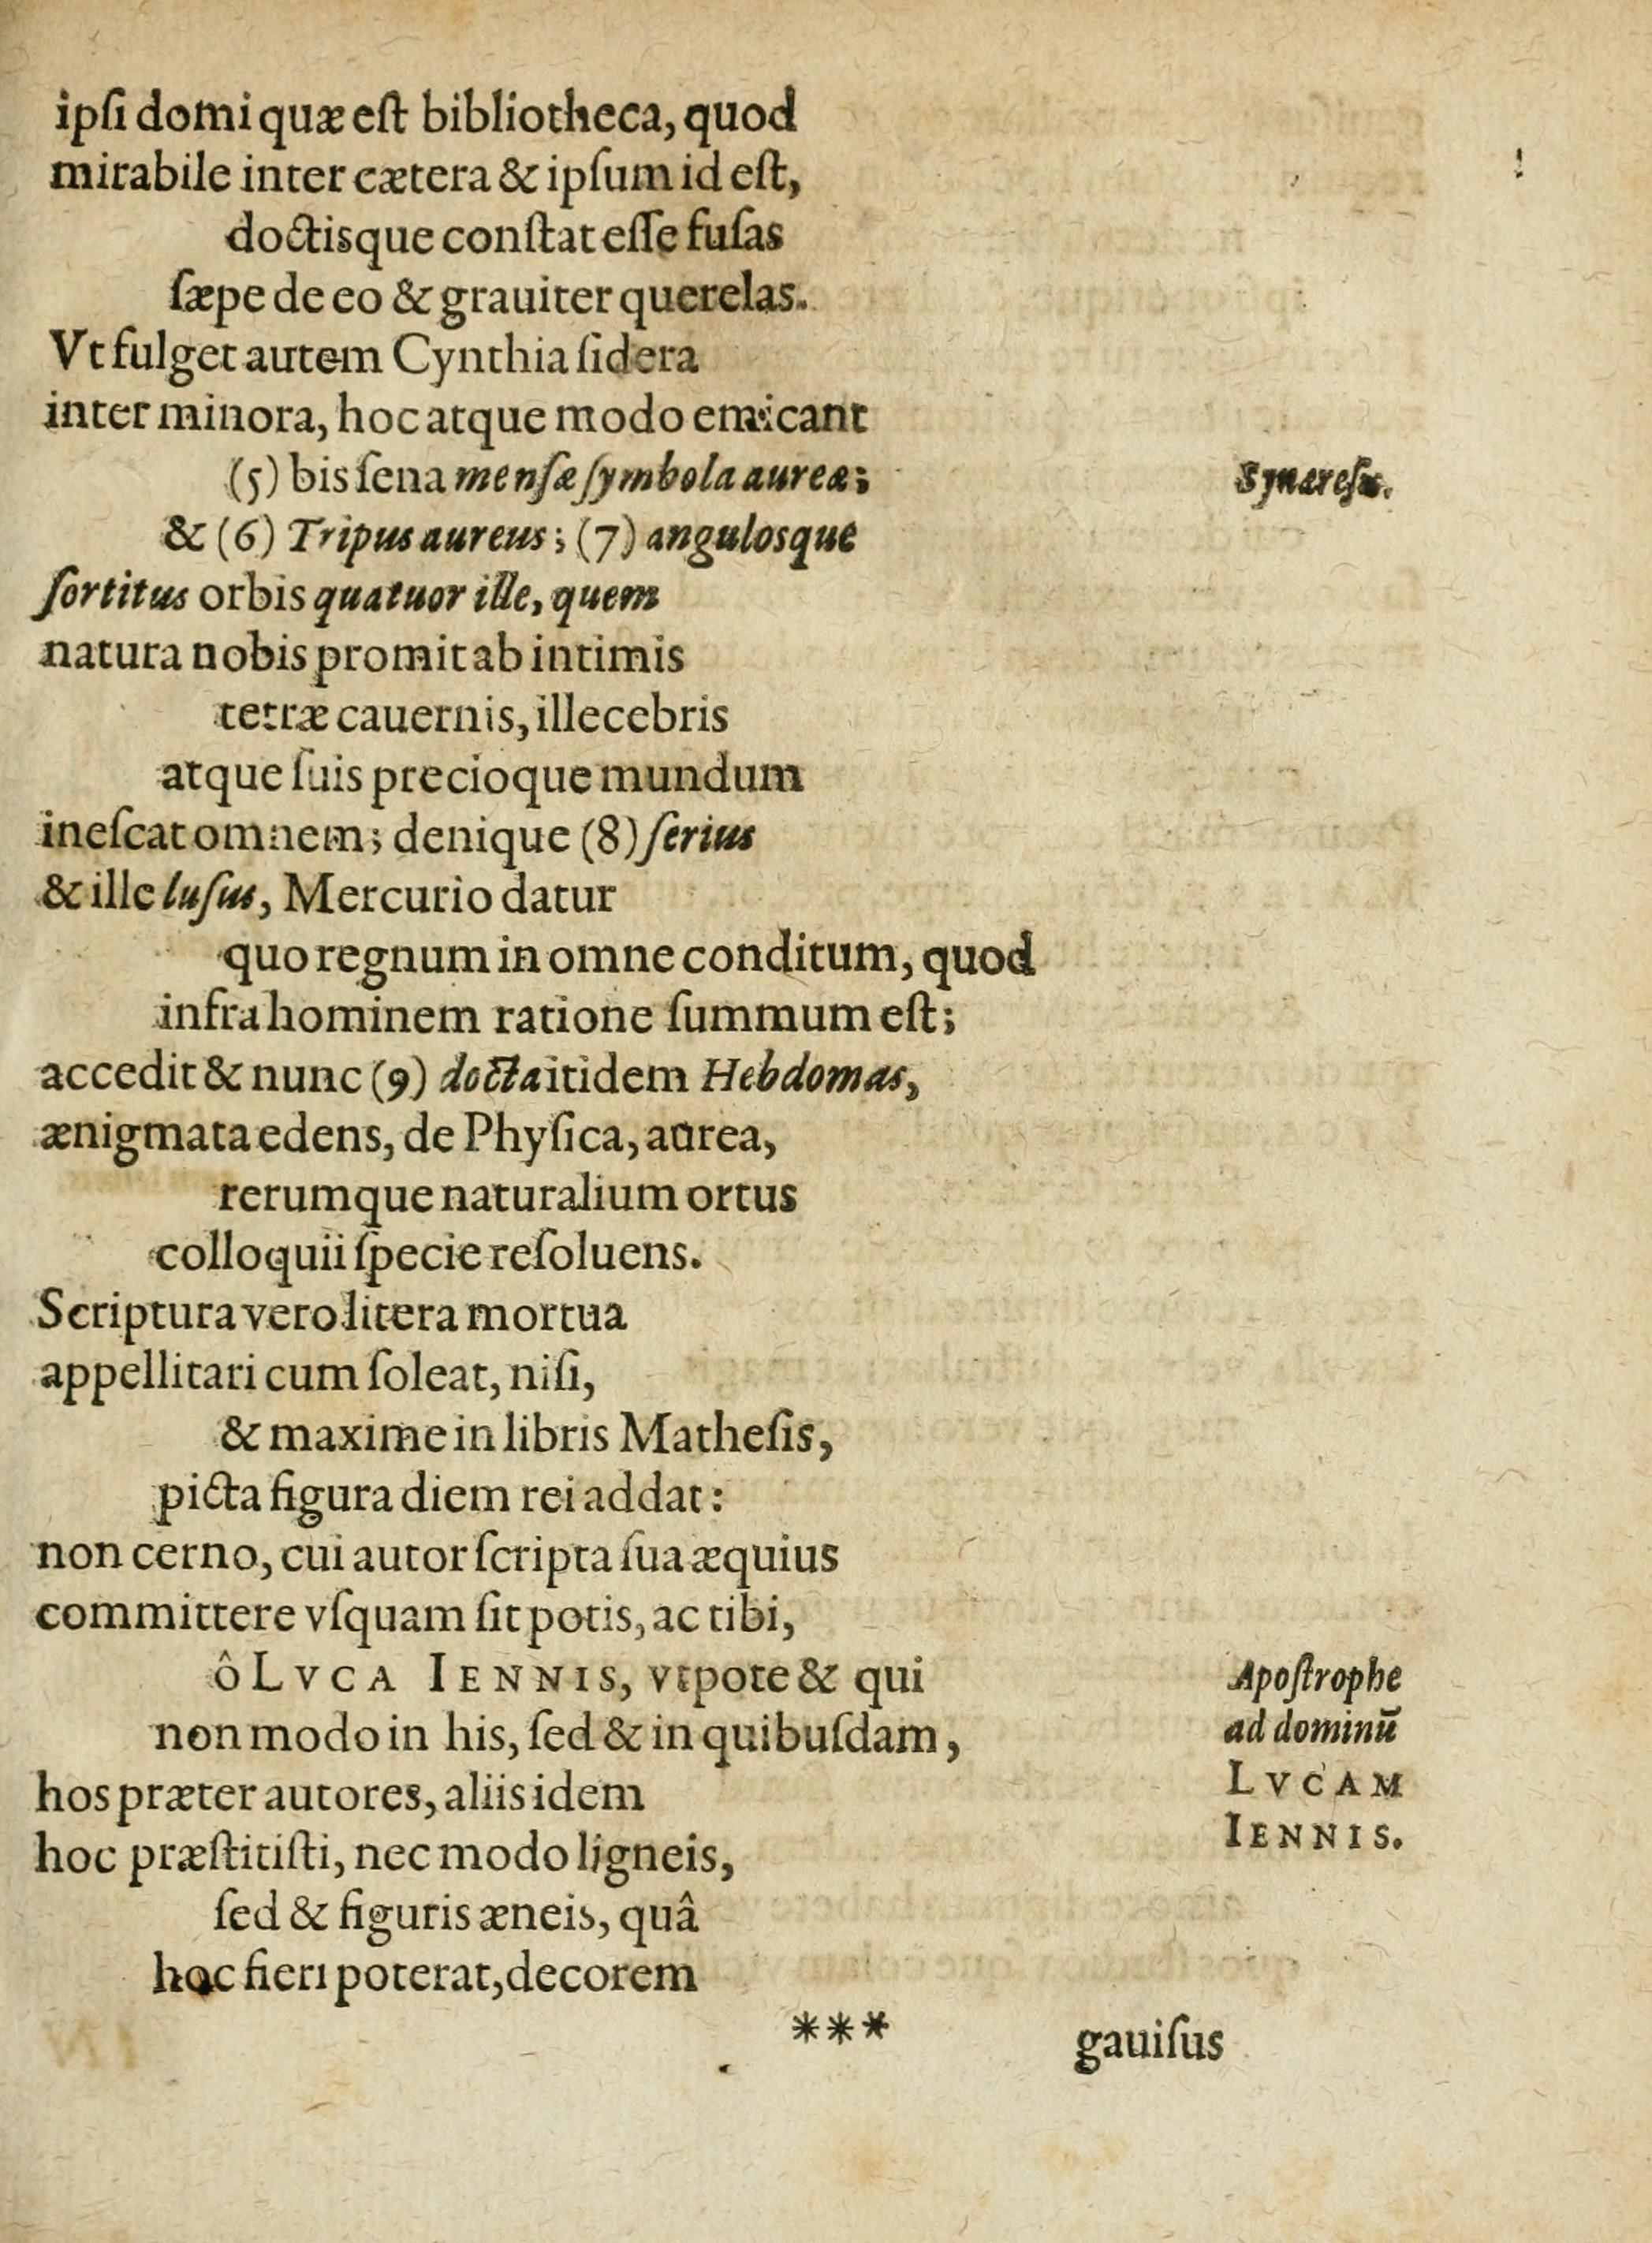 ipſi domi quæ eſt bibliotheca, quod
mirabile inter cætera & ipſum id eſt,
doctisque conſtat eſſe fuſas
ſæpe de eo & grauiter querelas.
Vt fulget autem Cynthia ſidera
inter minora, hoc atque modo emicant
(5) bis ſena menſæ ſymbola aureæ;
Synæreſis.
& (6) Tripus aureus; (7) angulosque
ſortitus orbis quatuor ille, quem
natura nobis promit ab intimis
terræ cauernis, illecebris
atque ſuis precioque mundum
ineſcat omnem; denique (8) ſerius
& ille luſus, Mercurio datur
quo regnum in omne conditum, quod
infra hominem ratione ſummum eſt;
accedit & nunc (9) docta itidem Hebdomas,
ænigmata edens, de Phyſica, aurea,
rerumque naturalium ortus
colloquii ſpecie reſoluens.
Scriptura vero litera mortua
appellitari cum ſoleat, niſi,
& maxime in libris Matheſis,
picta figura diem rei addat:
non cerno, cui autor ſcripta ſua æquius
committere vſquam ſit potis, ac tibi,
ô LVCA IENNIS, vtpote & qui
non modo in his, ſed & in quibuſdam,
Apoſtrophe
ad dominū
LVCAM
IENNIS.
hos præter autores, aliis idem
hoc præſtitiſti, nec modo ligneis,
ſed & figuris æneis, quâ
hoc fieri poterat, decorem
*** gauiſus